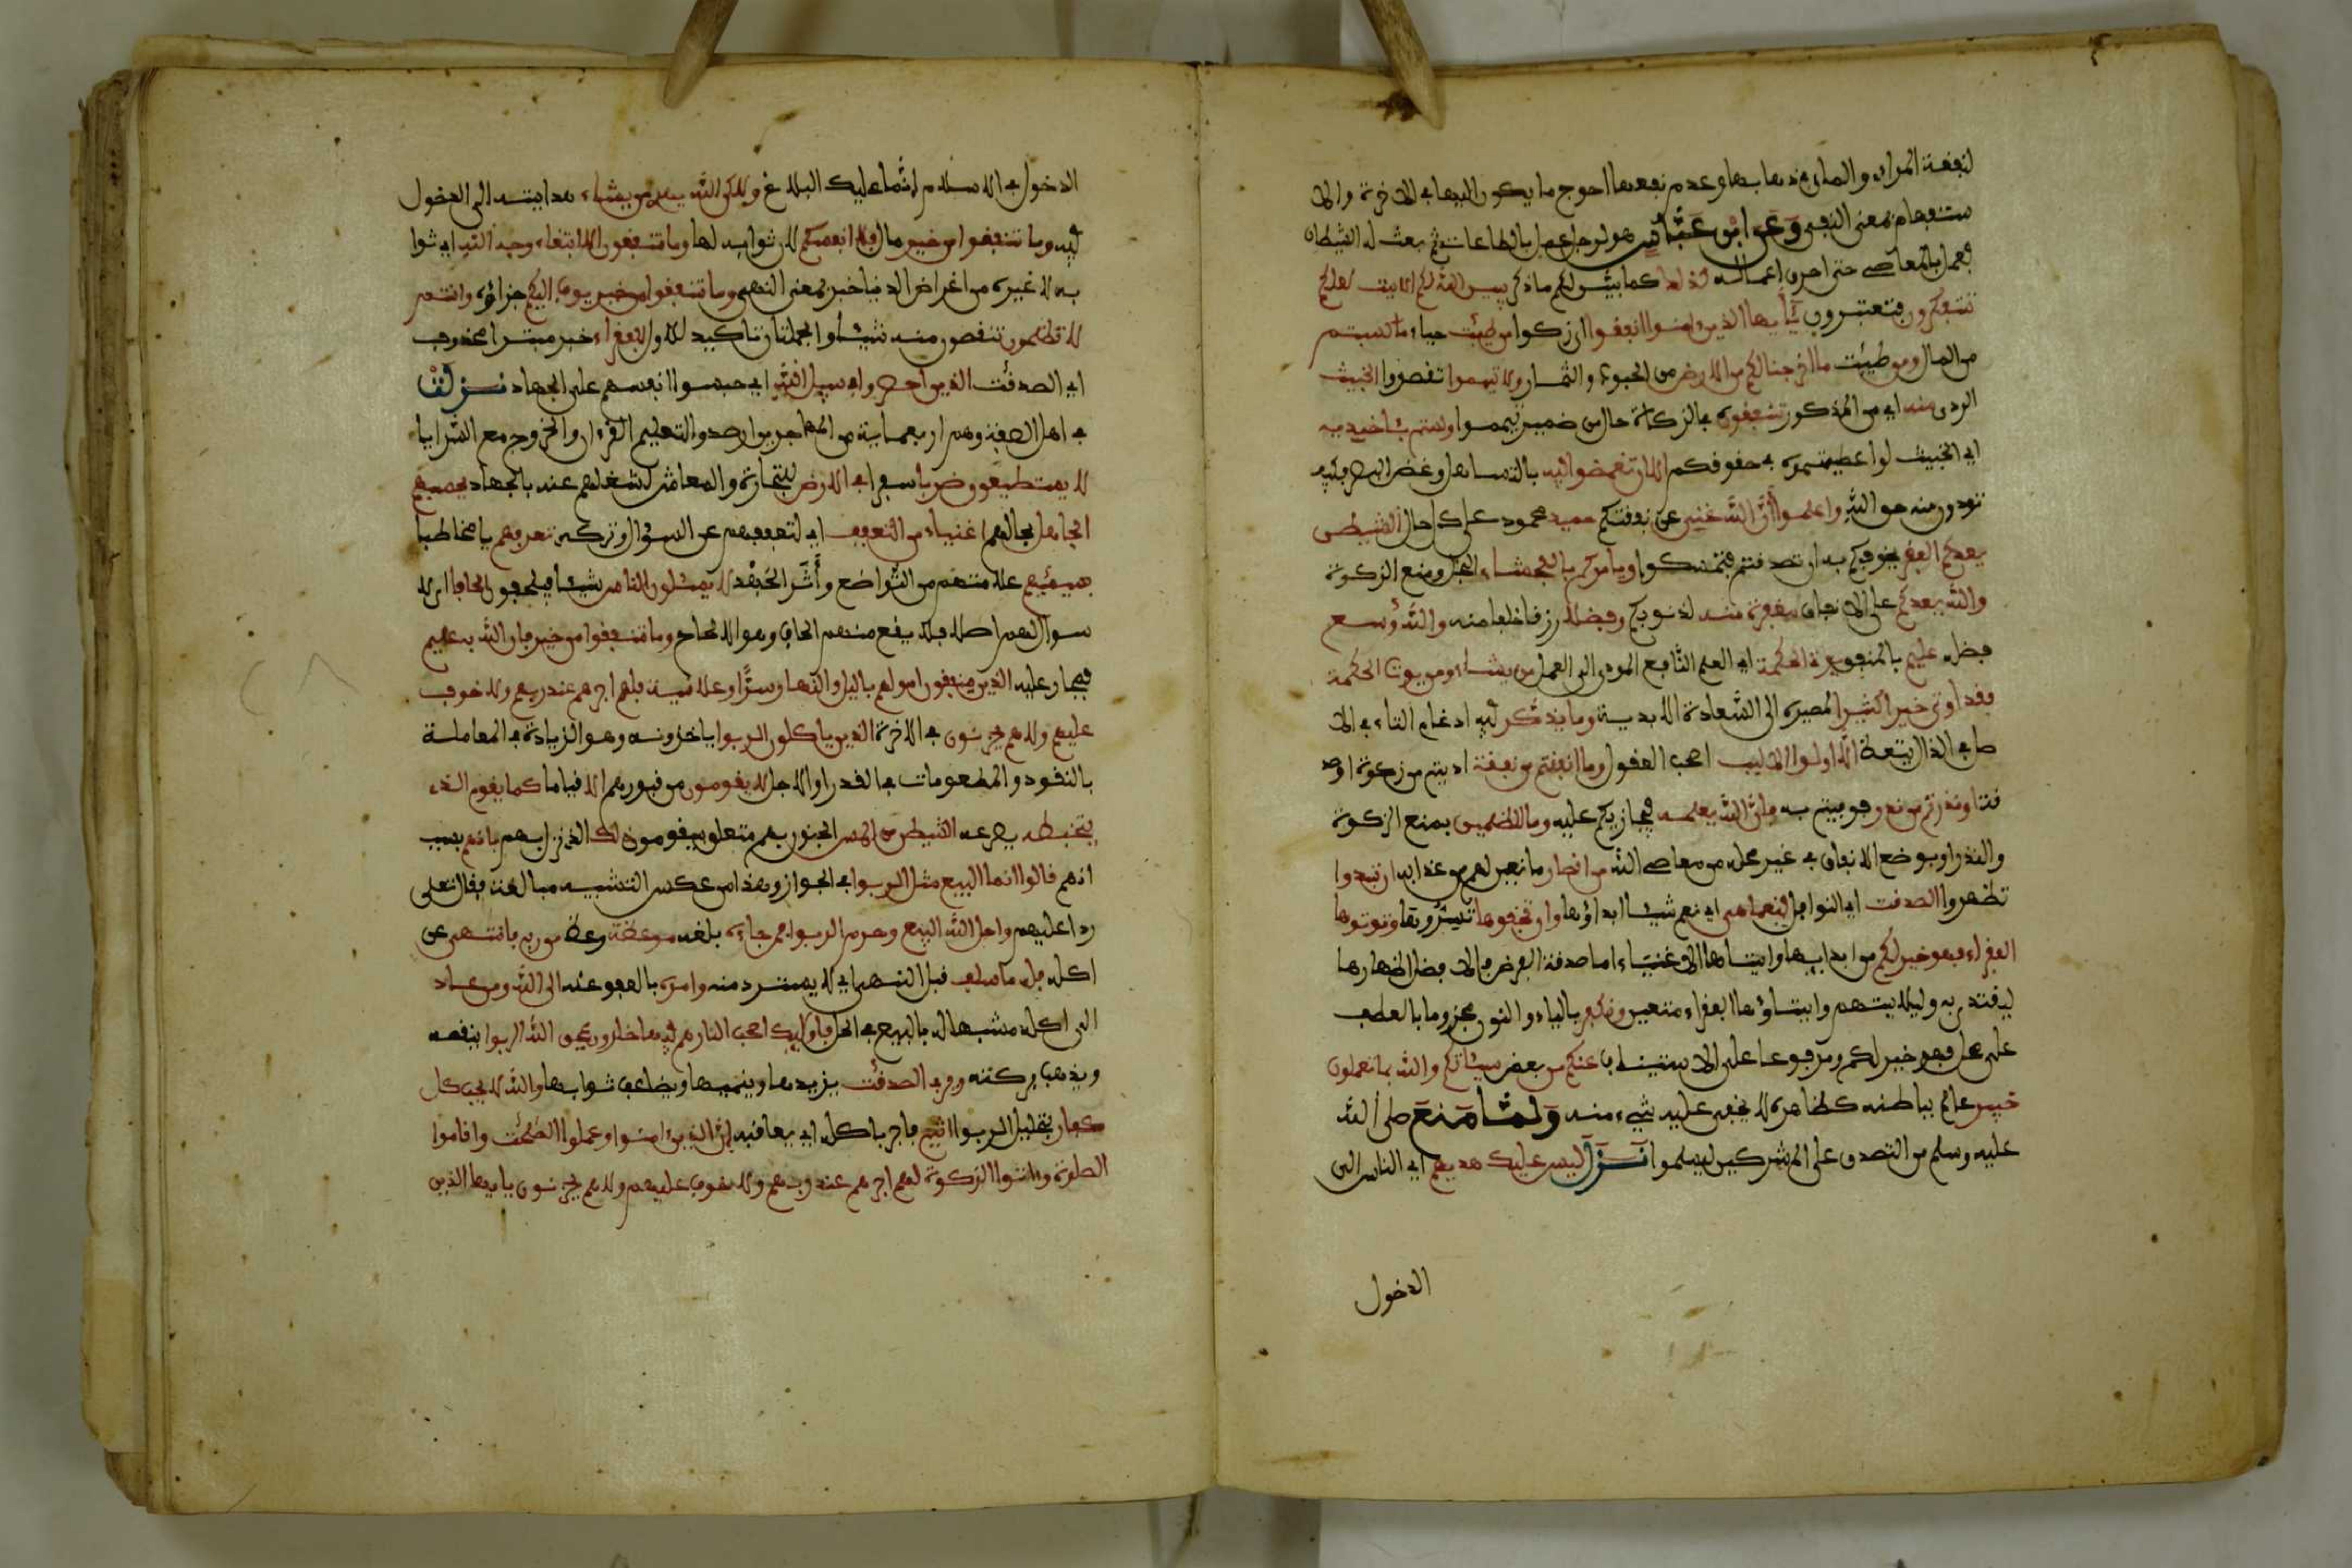 لنفقة المرائ والمان في ذهابها وعدم نفعها احوج ما يكون اليها في الاخرة والا
ستفهام بمعنى النفي وعن ابن عباس هو لرجل عمل بالطاعات ثم بعث له الشيطان
فعمل بالمعاصي حتى احرق اعماله كذلك كما بين لكم ما ذكر يبين الله لكم الايت لعلكم
تتفكرون فتعتبرون يأيها الذين ءامنوا انفقوا ازكوا من طيبت جياد ما كسبتم
من المال ومن طيبت ما اخرجنا لكم من الارض من الحبوب والثمار ولا تيمموا تقصدوا الخبيث
الردى منه اي من المذكور تنفقون في الزكاة حال من ضمير تيمموا ولستم بـاخذيه
اي الخبيث لو اعطيتموه في حقوقكم الا ان تغمضوا فيه بالتساهل وغض البصر فكيف
تؤدون منه حق الله واعلموا ان الله غني عن نفقتكم حميد محمود على كل حال الشيطن
يعدكم الفقر يخوفكم به ان تصدقتم فتمسكوا ويامركم بالفحشاء البخل ومنع الزكوة
والله يعدكم على الانفاق مغفرة منه لذنوبكم وفضلا رزقا خلفا منه والله وسع
فضله عليم بالمنفق يوتي الحكمة اي العلم النافع المودي الى العمل من يشاء ومن يوت الحكمة
فقد اوتي خيرا كثيرا لمصيره الى السعادة الابدية وما يذكر فيه ادغام التاء في الا
صل في الذال يتعظ الا اولوا الالبب اصحب العقول وما انفقتم من نفقة اديتم من زكوة او صد
قة او نذرتم من نذر فوفيتم به فان الله يعلمه فيجازيكم عليه وما للظلمين بمنع الزكوة
والنذر او بوضع الانفاق في غير محله من معاصي الله من انصار مانعين لهم من عذابه ان تبدوا
تظهروا الصدقت اي النوافل فنعما هي اي نعم شيئا ابداؤها وان تخفوها تسروها وتوتوها
الفقراء فهو خير لكم من ابدايها وايتايها الاغنياء اما صدقة الفرض فالا فضل اظهارها
ليقتدى به وليلا يتهم وايتاؤها الفقراء متعين ونكفر بالياء والنون مجزوما بالعطف
على محل فهو خير لكم ومرفوعا على الاستيناف عنكم من بعض سيئاتكم والله بما تعملون
خبير عالم بباطنه كظاهره لا يخفى عليه شيء منه ولما منع صلى الله
عليه وسلم من التصدق على المشركين ليسلموا نزل ليس عليك هديهم اي الناس الى
الدخول
الدخول في الاسلام انما عليك البلاغ ولكن الله يهدي من يشاء هدايته الى الدخول
فيه وما تنفقوا من خير مال فلا نفسكم لان ثوابه لها وما تنفقون الا ابتغاء وجه الله اي ثوا
به لا غيره من اغراض الدنيا خبر بمعنى النهي وما تنفقوا من خير يوف اليكم جزاؤه وانتم
لا تظلمون تنقصون منه شيئا والجملتان تاكيد للاولى للفقراء خبر مبتدا محذوف
اي الصدقت الذين احصروا في سبيل الله اي حبسوا انفسهم على الجهاد نزلت
في اهل الصفة وهم اربعماية من المهاجرين ارصدوا لتعليم القرءان والخروج مع السرايا
لا يستطيعون ضربا سفرا في الارض للتجارة والمعاش لشغلهم عنه بالجهاد يحسبهم
الجاهل بحالهم اغنياء من التعفف اي لتعففهم عن السؤال وتركه تعرفهم يا مخاطبا
بسيميهم علامتهم من التواضع وأثر الجهد لا يسئلون الناس شيئا فيلحفون الحافا اي لا
سوال لهم اصلا فلا يقع منهم الحاف وهو الالحاح وما تنفقوا من خير فان الله به عليم
فيجاز عليه الذين ينفقون امولهم باليل والنهار سرا وعلانية فلهم اجرهم عند ربهم ولا خوف
عليهم ولا هم يحزنون في الاخرة الذين ياكلون الربوا ياخذونه وهو الزيادة في المعاملة
بالنقود والمطعومات في القدر او الاجل لا يقومون من قبورهم الا قياما كما يقوم الذى
يتخبطه يصرعه الشيطن من المس الجنون بهم متعلق بيقومون ذلك الذي نزل بهم بانهم بسبب
انهم قالوا انما البيع مثل الربوا في الجواز وهذا من عكس التشبيه مبالغة فقال تعلى
ردا عليهم واحل الله البيع وحرم الربوا فمن جاءه بلغه موعظة وعظ من ربه فانتهى عن
اكله فله ما سلف قبل النهي اي لا يسترد منه وامره بالعفو عنه الى الله ومن عاد
الى اكله مشبها له بالبيع في الحل فاوليك اصحب النار هم فيها خلدون يمحق الله الربوا ينقصه
ويذهب بركته ويربي الصدقت يزيدها وينميها ويضاعف ثوابها والله لا يحب كل
كفار بتحليل الربوا اثيم فاجر باكله اي يعاقبه ان الذين امنوا وعملوا الصلحت واقاموا
الصلوة وءاتوا الزكوة لهم اجرهم عند ربهم ولا خوف عليهم ولا هم يحزنون يايها الذين